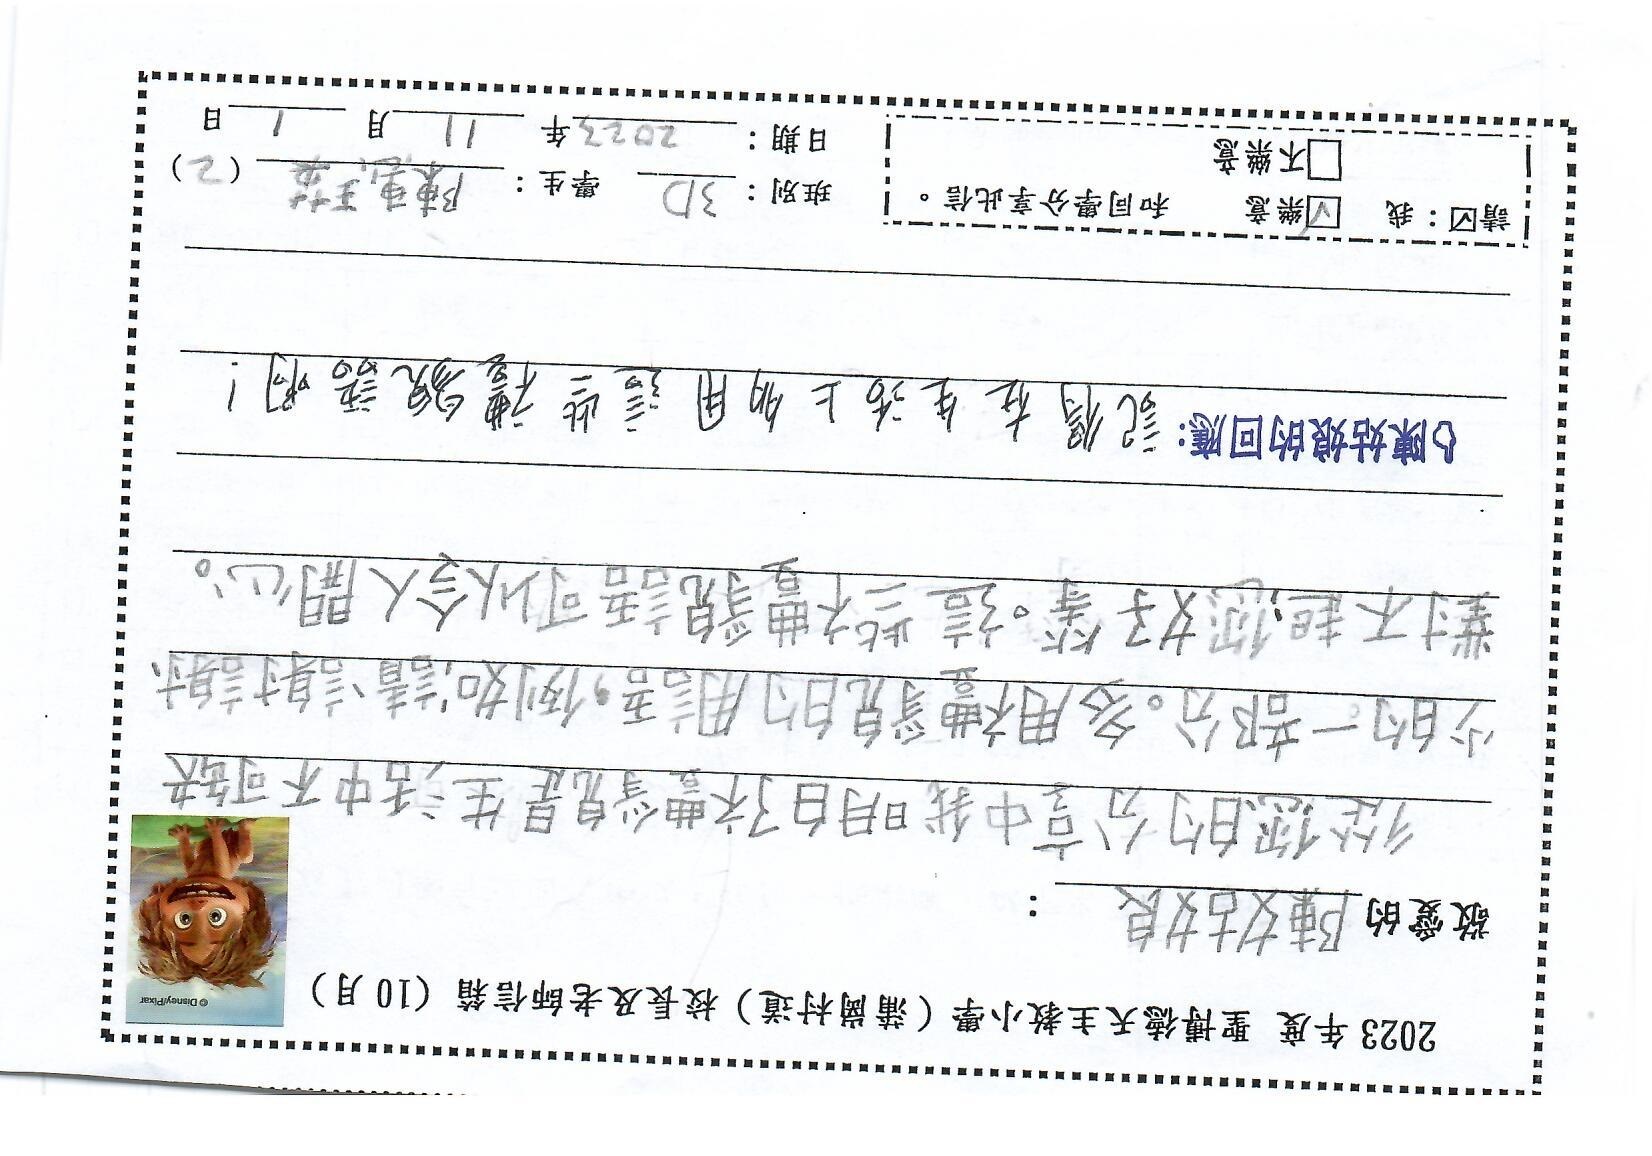 2023 年度 聖博德天主教小學（蒲崗村道）校長及老師信箱（10 月）
© Disney/Pixar
敬愛的 陳姑娘 ：
從您的分享中我明白了禮貌是生活中不可缺
少的一部分。多用禮貌的用語，例如：請、謝謝、
對不起、您好等。這些禮貌語可以令人開心。
陳姑娘的回應: 記得在生活上多用這些禮貌語啊！
請☑：我 ☑樂意 和同學分享此信。
□不樂意
班別：3D 學生：陳 （2）
日期：2023年 11月 1日